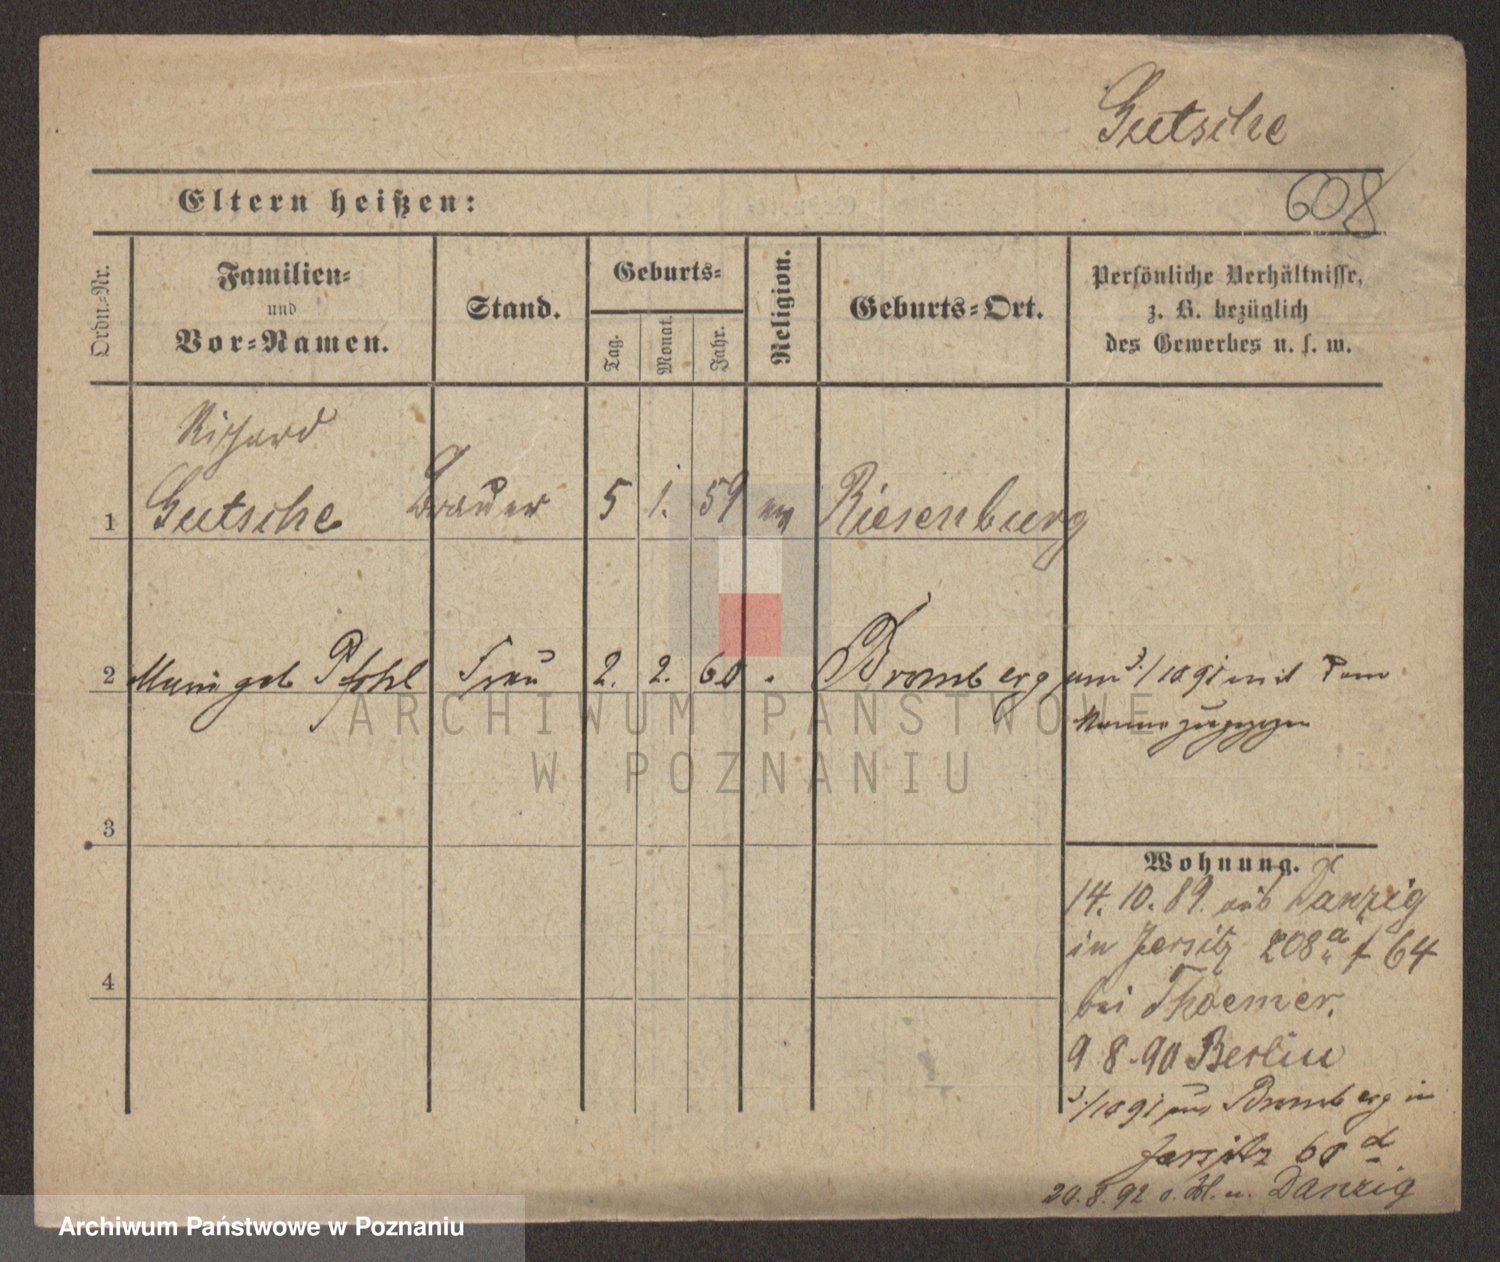 Gutsche
608
Eltern heißen:
Ordn.-Nr.
Familien-
und
Vor-Namen.
Stand.
Geburts-
Tag.
Monat.
Jahr.
Religion.
Geburts-Ort.
Persönliche Verhältnisse,
z. B. bezüglich
des Gewerbes u. s. w.
Richard
1 Gutsche Brauer 5 1. 59 ev Riesenburg
2 Marie geb Pfohl Frau 2. 2. 60 Bromberg am 3/10 91 mit dem
Manne zugezogen
3
4
Wohnung.
14. 10. 89. aus Danzig
in Jersitz 208 a f 64
bei Thoemer.
9 8. 90 Berlin
3/10 91 aus Bromberg in
Jersitz 68 d
20. 8. 92 Danzig
ARCHIWUM PAŃSTWOWE
W POZNANIU
Archiwum Państwowe w Poznaniu